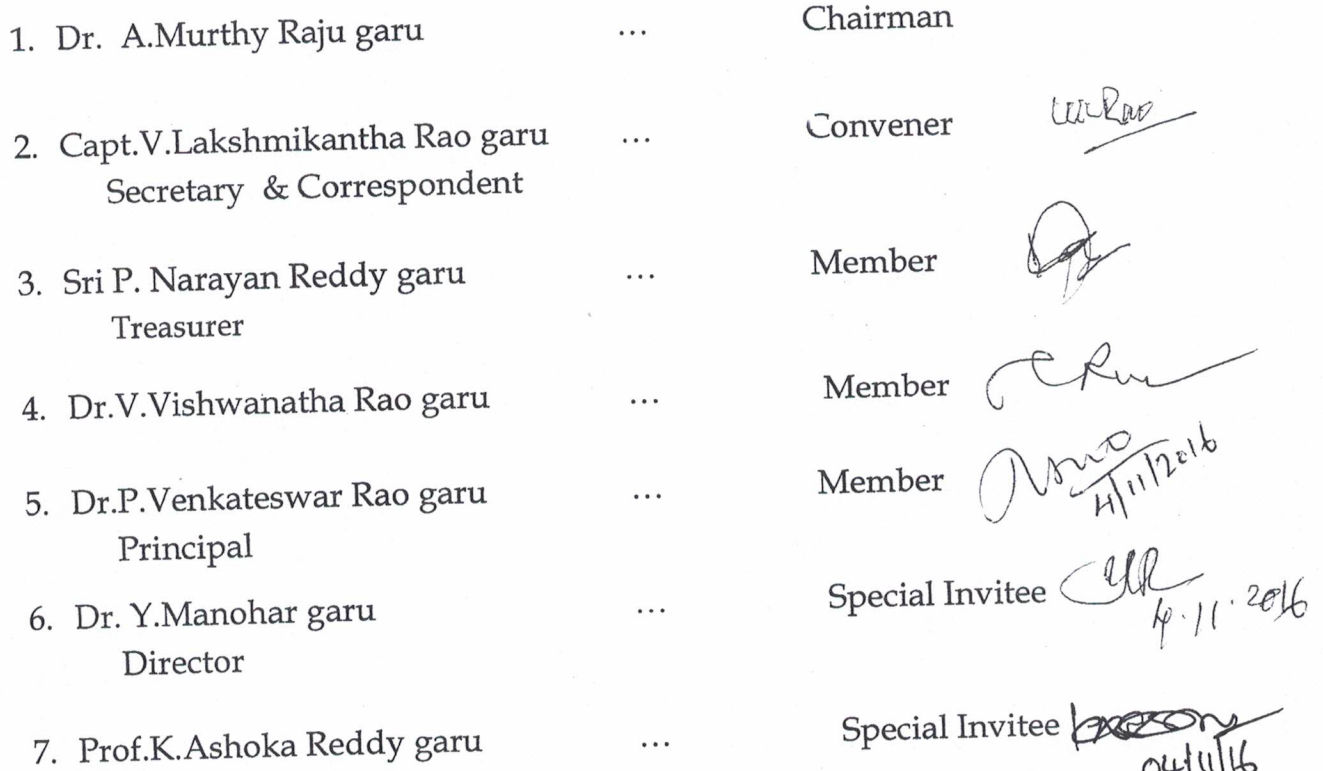 1. Dr. A.Murthy Raju garu ... Chairman
2. Capt.V.Lakshmikantha Rao garu ... Convener
Secretary & Correspondent
3. Sri P. Narayan Reddy garu ... Member
Treasurer
4. Dr.V.Vishwanatha Rao garu ... Member
5. Dr.P.Venkateswar Rao garu ... Member
4/11/2016
Principal
6. Dr. Y.Manohar garu ... Special Invitee
4.11.2016
Director
7. Prof.K.Ashoka Reddy garu ... Special Invitee
04/11/16